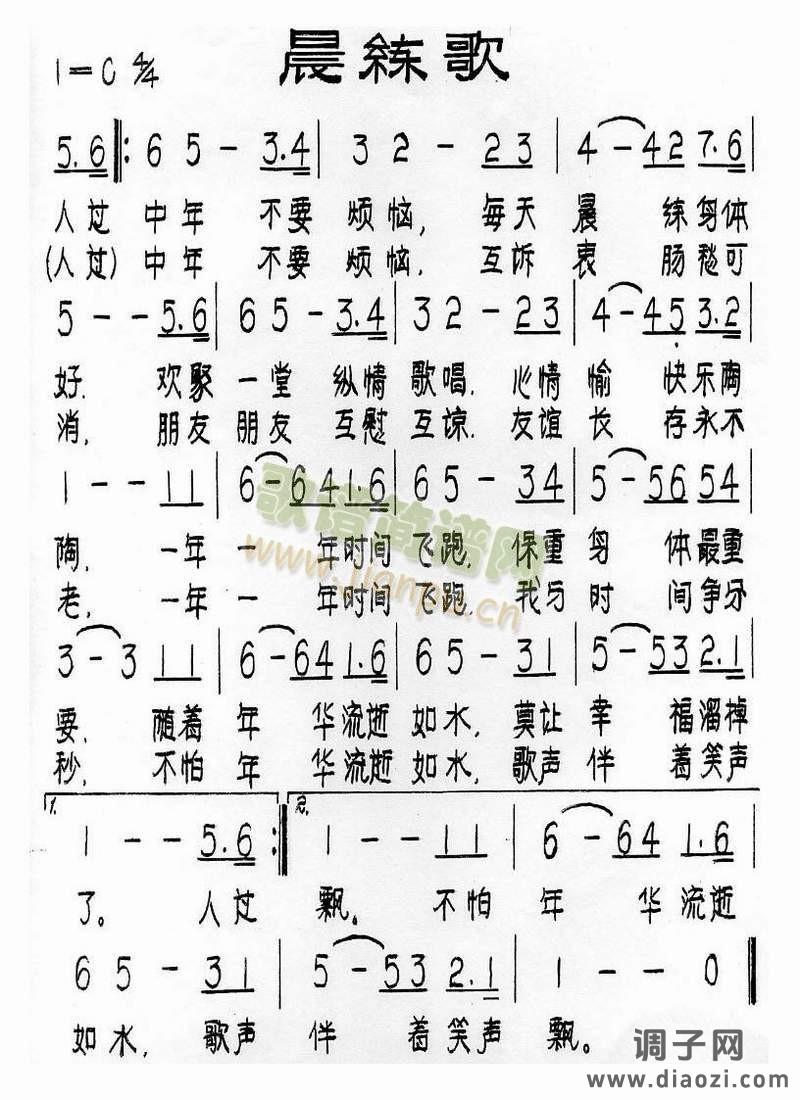 晨練歌
1=C 4/4
5.6 ‖: 6 5 - 3.4 | 3 2 - 23 | 4 - 42 7.6 |
人过 中年 不要 烦恼, 每天 晨 练身体
(人过) 中年 不要 烦恼. 互诉 衷 肠愁可
5 - - 5.6 | 6 5 - 3.4 | 3 2 - 23 | 4 - 45 3.2 |
好. 欢聚 一堂 纵情 歌唱. 心情 愉 快乐陶
消, 朋友 朋友 互慰 互谅. 友谊 长 存永不
1 - - 11 | 6 - 64 1.6 | 6 5 - 34 | 5 - 56 54 |
陶, 一年 一 年时间 飞跑, 保重 身 体最重
老, 一年 一 年时间 飞跑. 我与 时 间争分
3 - 3 11 | 6 - 64 1.6 | 6 5 - 31 | 5 - 53 2.1 |
要, 随着 年 华流逝 如水, 莫让 幸 福溜掉
秒, 不怕 年 华流逝 如水, 歌声 伴 着笑声
1. 1 - - 5.6 :‖ 2. 1 - - 11 | 6 - 64 1.6 |
了。 人过 飘。 不怕 年 华 流逝
6 5 - 31 | 5 - 53 2.1 | 1 - - 0 ‖
如水, 歌声 伴 着笑声 飘。
歌谱简谱网
www.jianpu.cn
调子网
www.diaozi.com